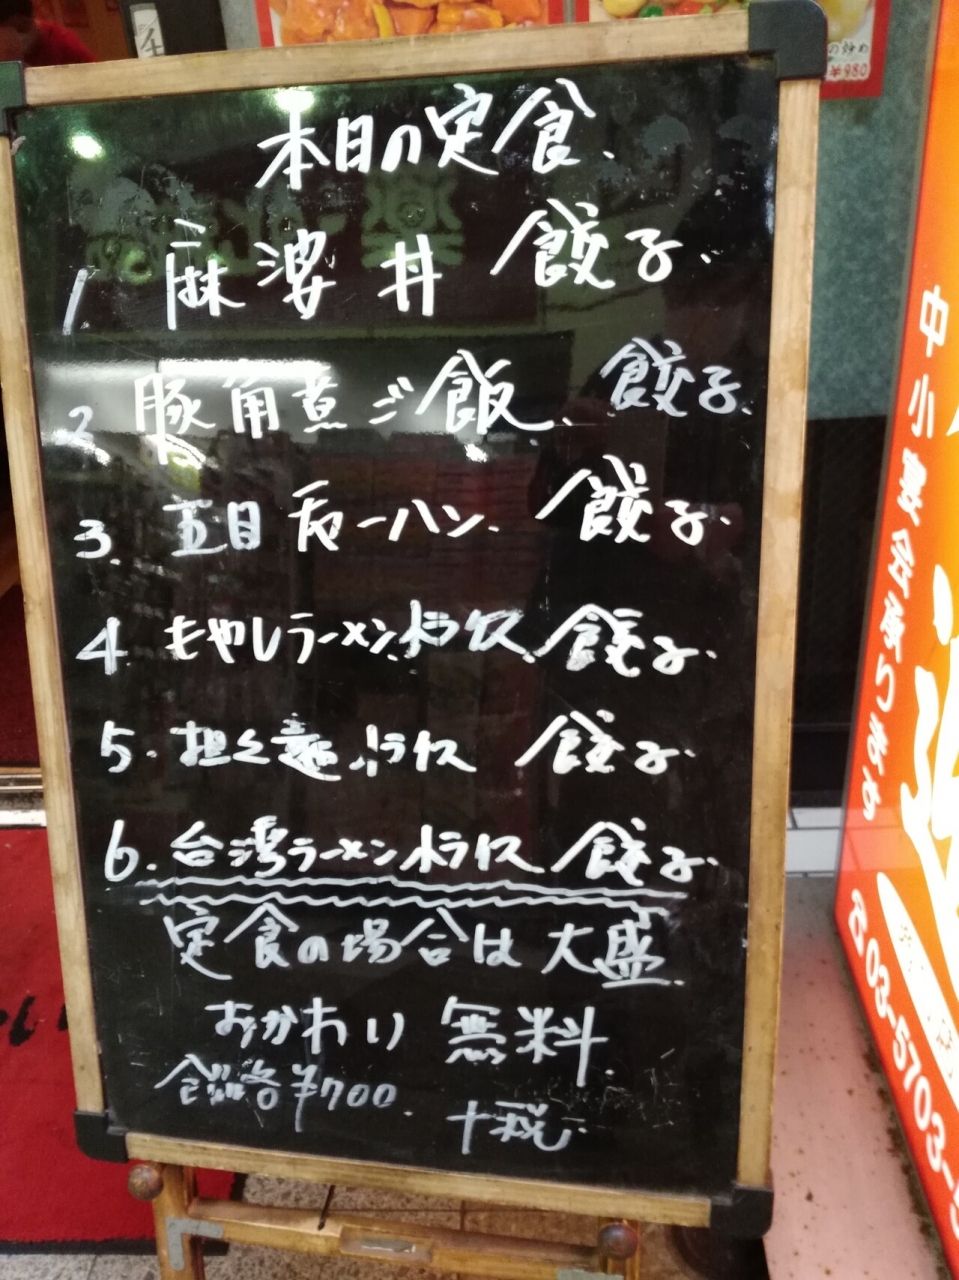 の炒め
¥980
本日の定食、
1 麻婆丼 餃子、
2 豚角煮ご飯、餃子、
3、五目チャーハン、餃子、
4、もやしラーメン、半ライス、餃子、
5、担々麺、半ライス 餃子、
6、台湾ラーメン、半ライス 餃子、
定食の場合は大盛
おかわり 無料
¥700、
十税、
中小宴会承ります
03-5703-5